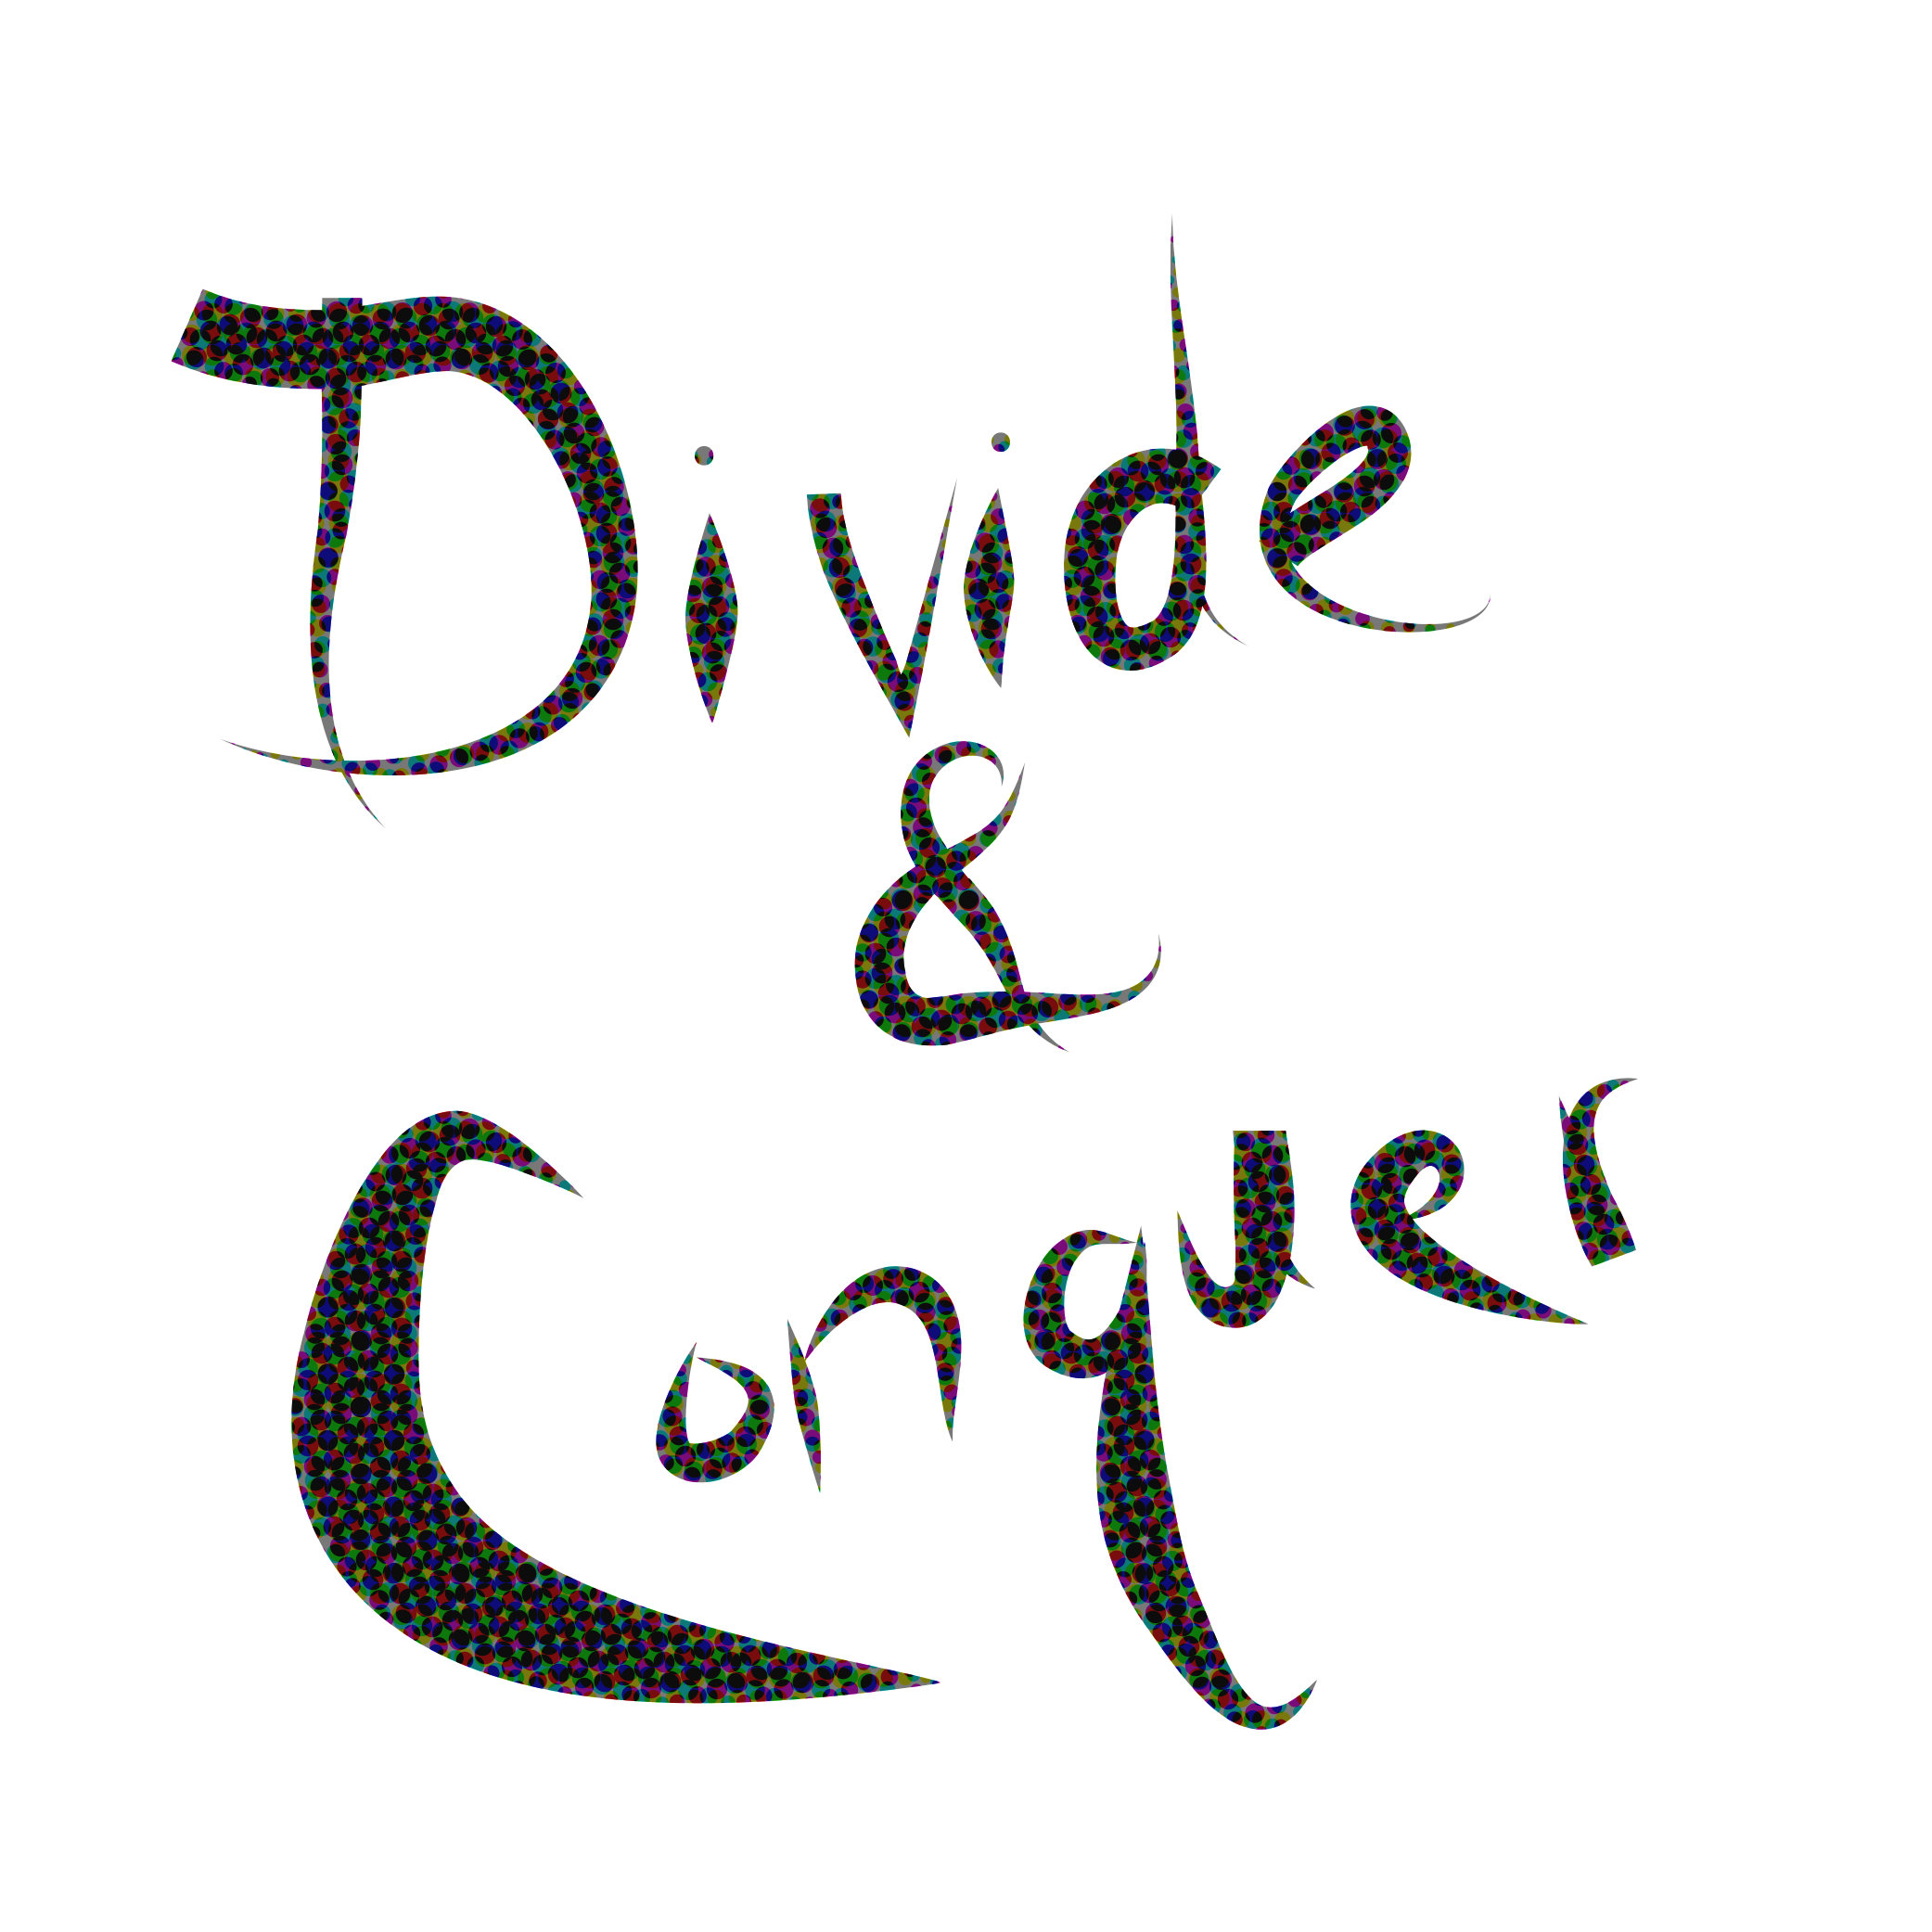 Divide
&
Conquer